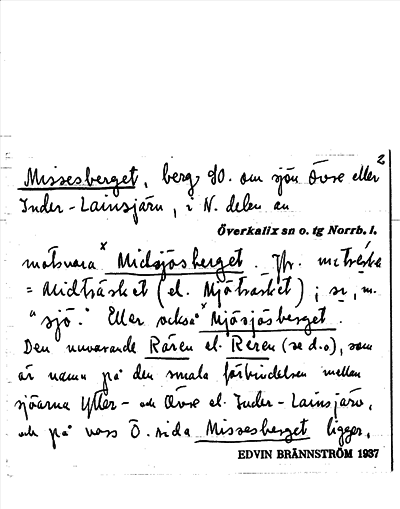 2
Missesberget, berg SO. om sjön Övre eller
Inder-Lainsjärv, i N. delen av
Överkalix sn o. tg Norrb. l.
motsvara ˣMidsjösberget. Jfr.
= Midträsket (el. Mjöträsket) i sn, m.
"sjö." Eller också ˣMjösjösberget.
Den nuvarande Råren el. Reren (se d.o), som
är namn på den smala förbindelsen mellan
sjöarna Ytter- och Övre el. Inder-Lainsjärv,
och på vars Ö. sida Missesberget ligger,
EDVIN BRÄNNSTRÖM 1937